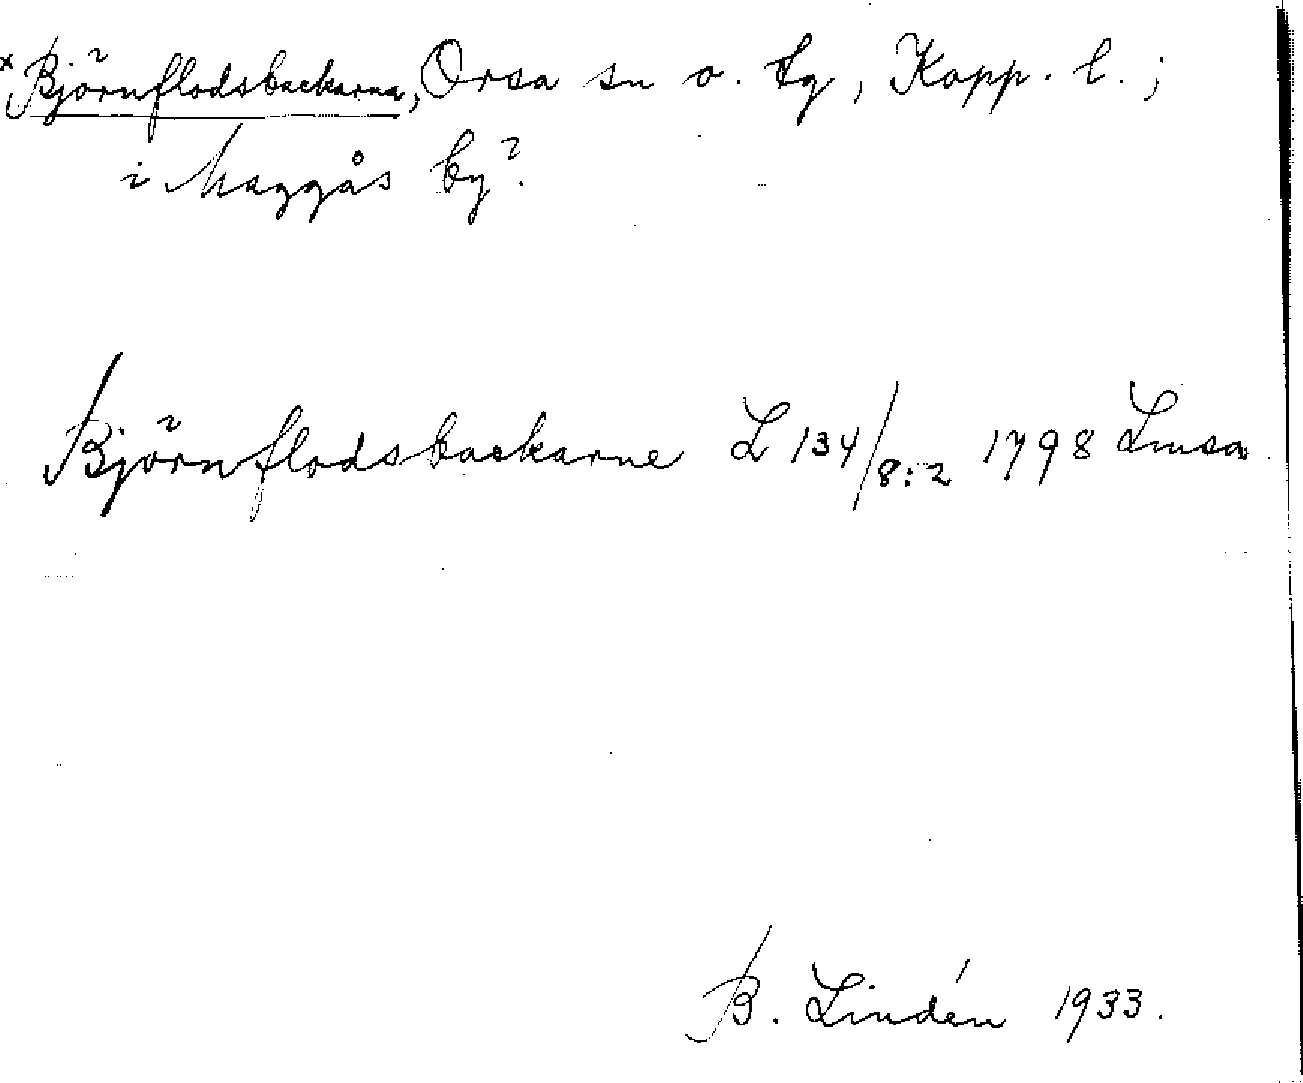 ×Björnflodsbackarna, Orsa sn o. tg, Kopp. l.;
i Maggås by?
Björnflodsbackarne L 134/8:2 1798 Lmsa
B. Lindén 1933.